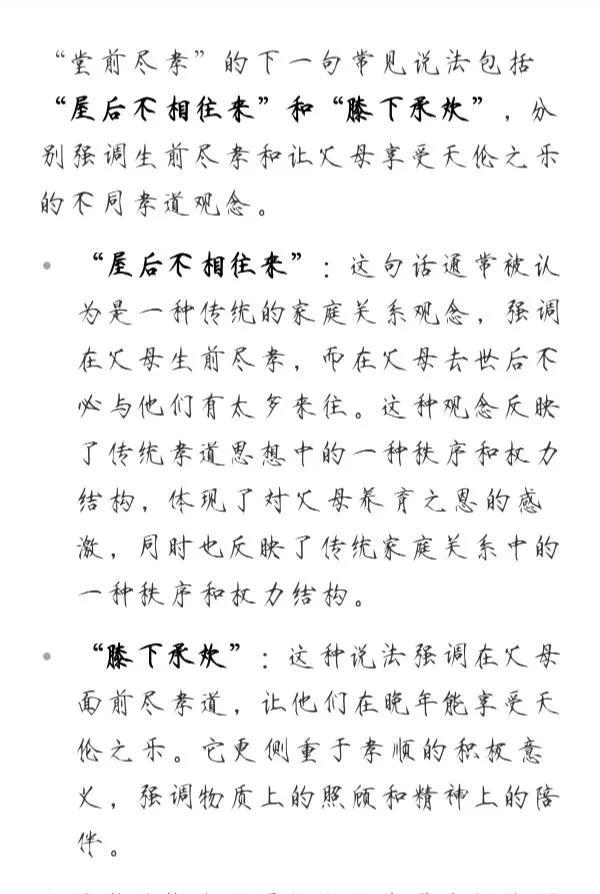 “堂前尽孝”的下一句常见说法包括
“屋后不相往来”和“膝下承欢”，分
别强调生前尽孝和让父母享受天伦之乐
的不同孝道观念。
“屋后不相往来”：这句话通常被认
为是一种传统的家庭关系观念，强调
在父母生前尽孝，而在父母去世后不
必与他们有太多来往。这种观念反映
了传统孝道思想中的一种秩序和权力
结构，体现了对父母养育之恩的感
激，同时也反映了传统家庭关系中的
一种秩序和权力结构。
“膝下承欢”：这种说法强调在父母
面前尽孝道，让他们在晚年能享受天
伦之乐。它更侧重于孝顺的积极意
义，强调物质上的照顾和精神上的陪
伴。